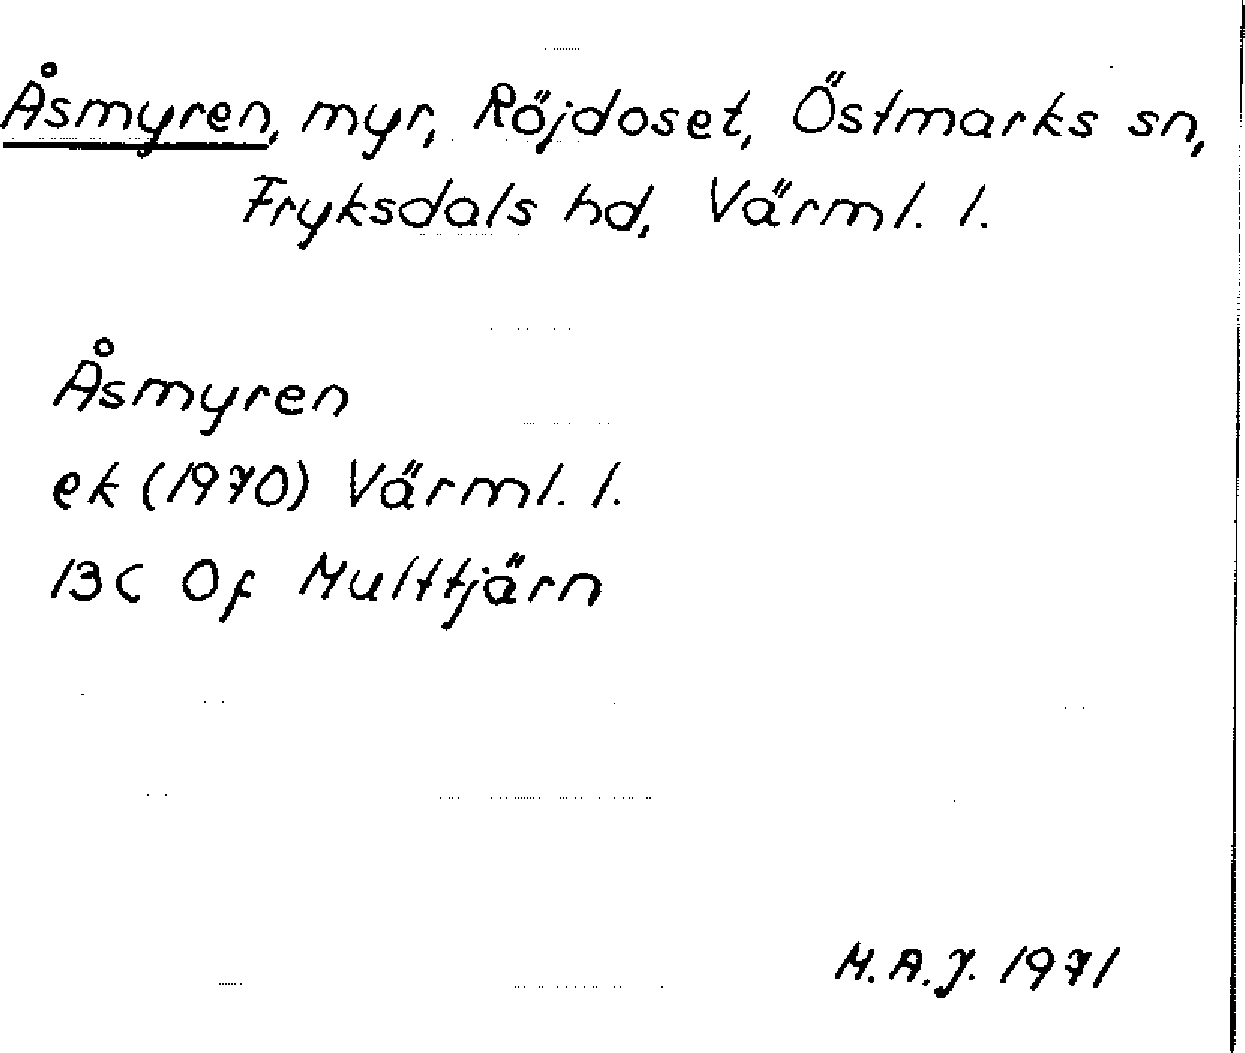 Åsmyren, myr, Röjdoset, Östmarks sn,
Fryksdals hd, Värml. l.
Åsmyren
ek (1970) Värml. l.
13C Of Multtjärn
M.A.J. 1971